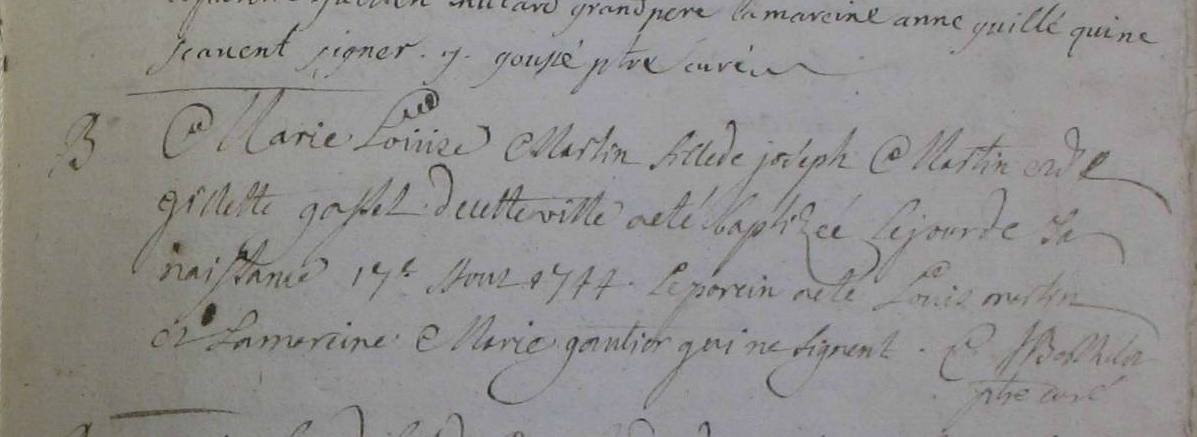 grand pere la mareine anne guillé qui ne
scavent signer . y . goussé ptre curé
B Marie Louise Martin fille de joseph Martin et de
gillette gosset de cette ville a eté baptizée le jour de sa
naissance 17e Aout 1744 . le parein a eté Louis martin
et La mareine Marie gautier qui ne signent .
ptre curé